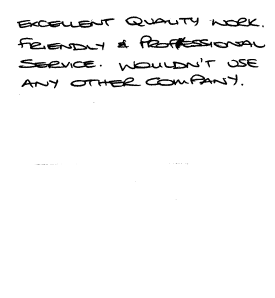 EXCELLENT QUALITY WORK.
FRIENDLY & PROFESSIONAL
SERVICE. WOULDN'T USE
ANY OTHER COMPANY.